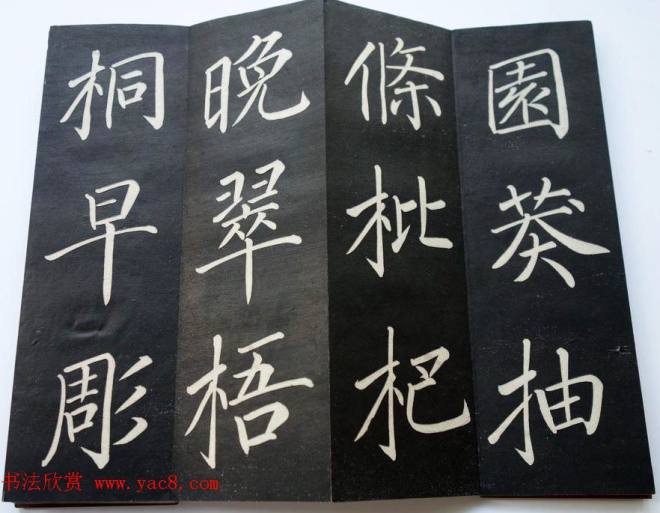 園莽抽
條枇杷
晚翠梧
桐早彫
书法欣赏 www.yac8.com